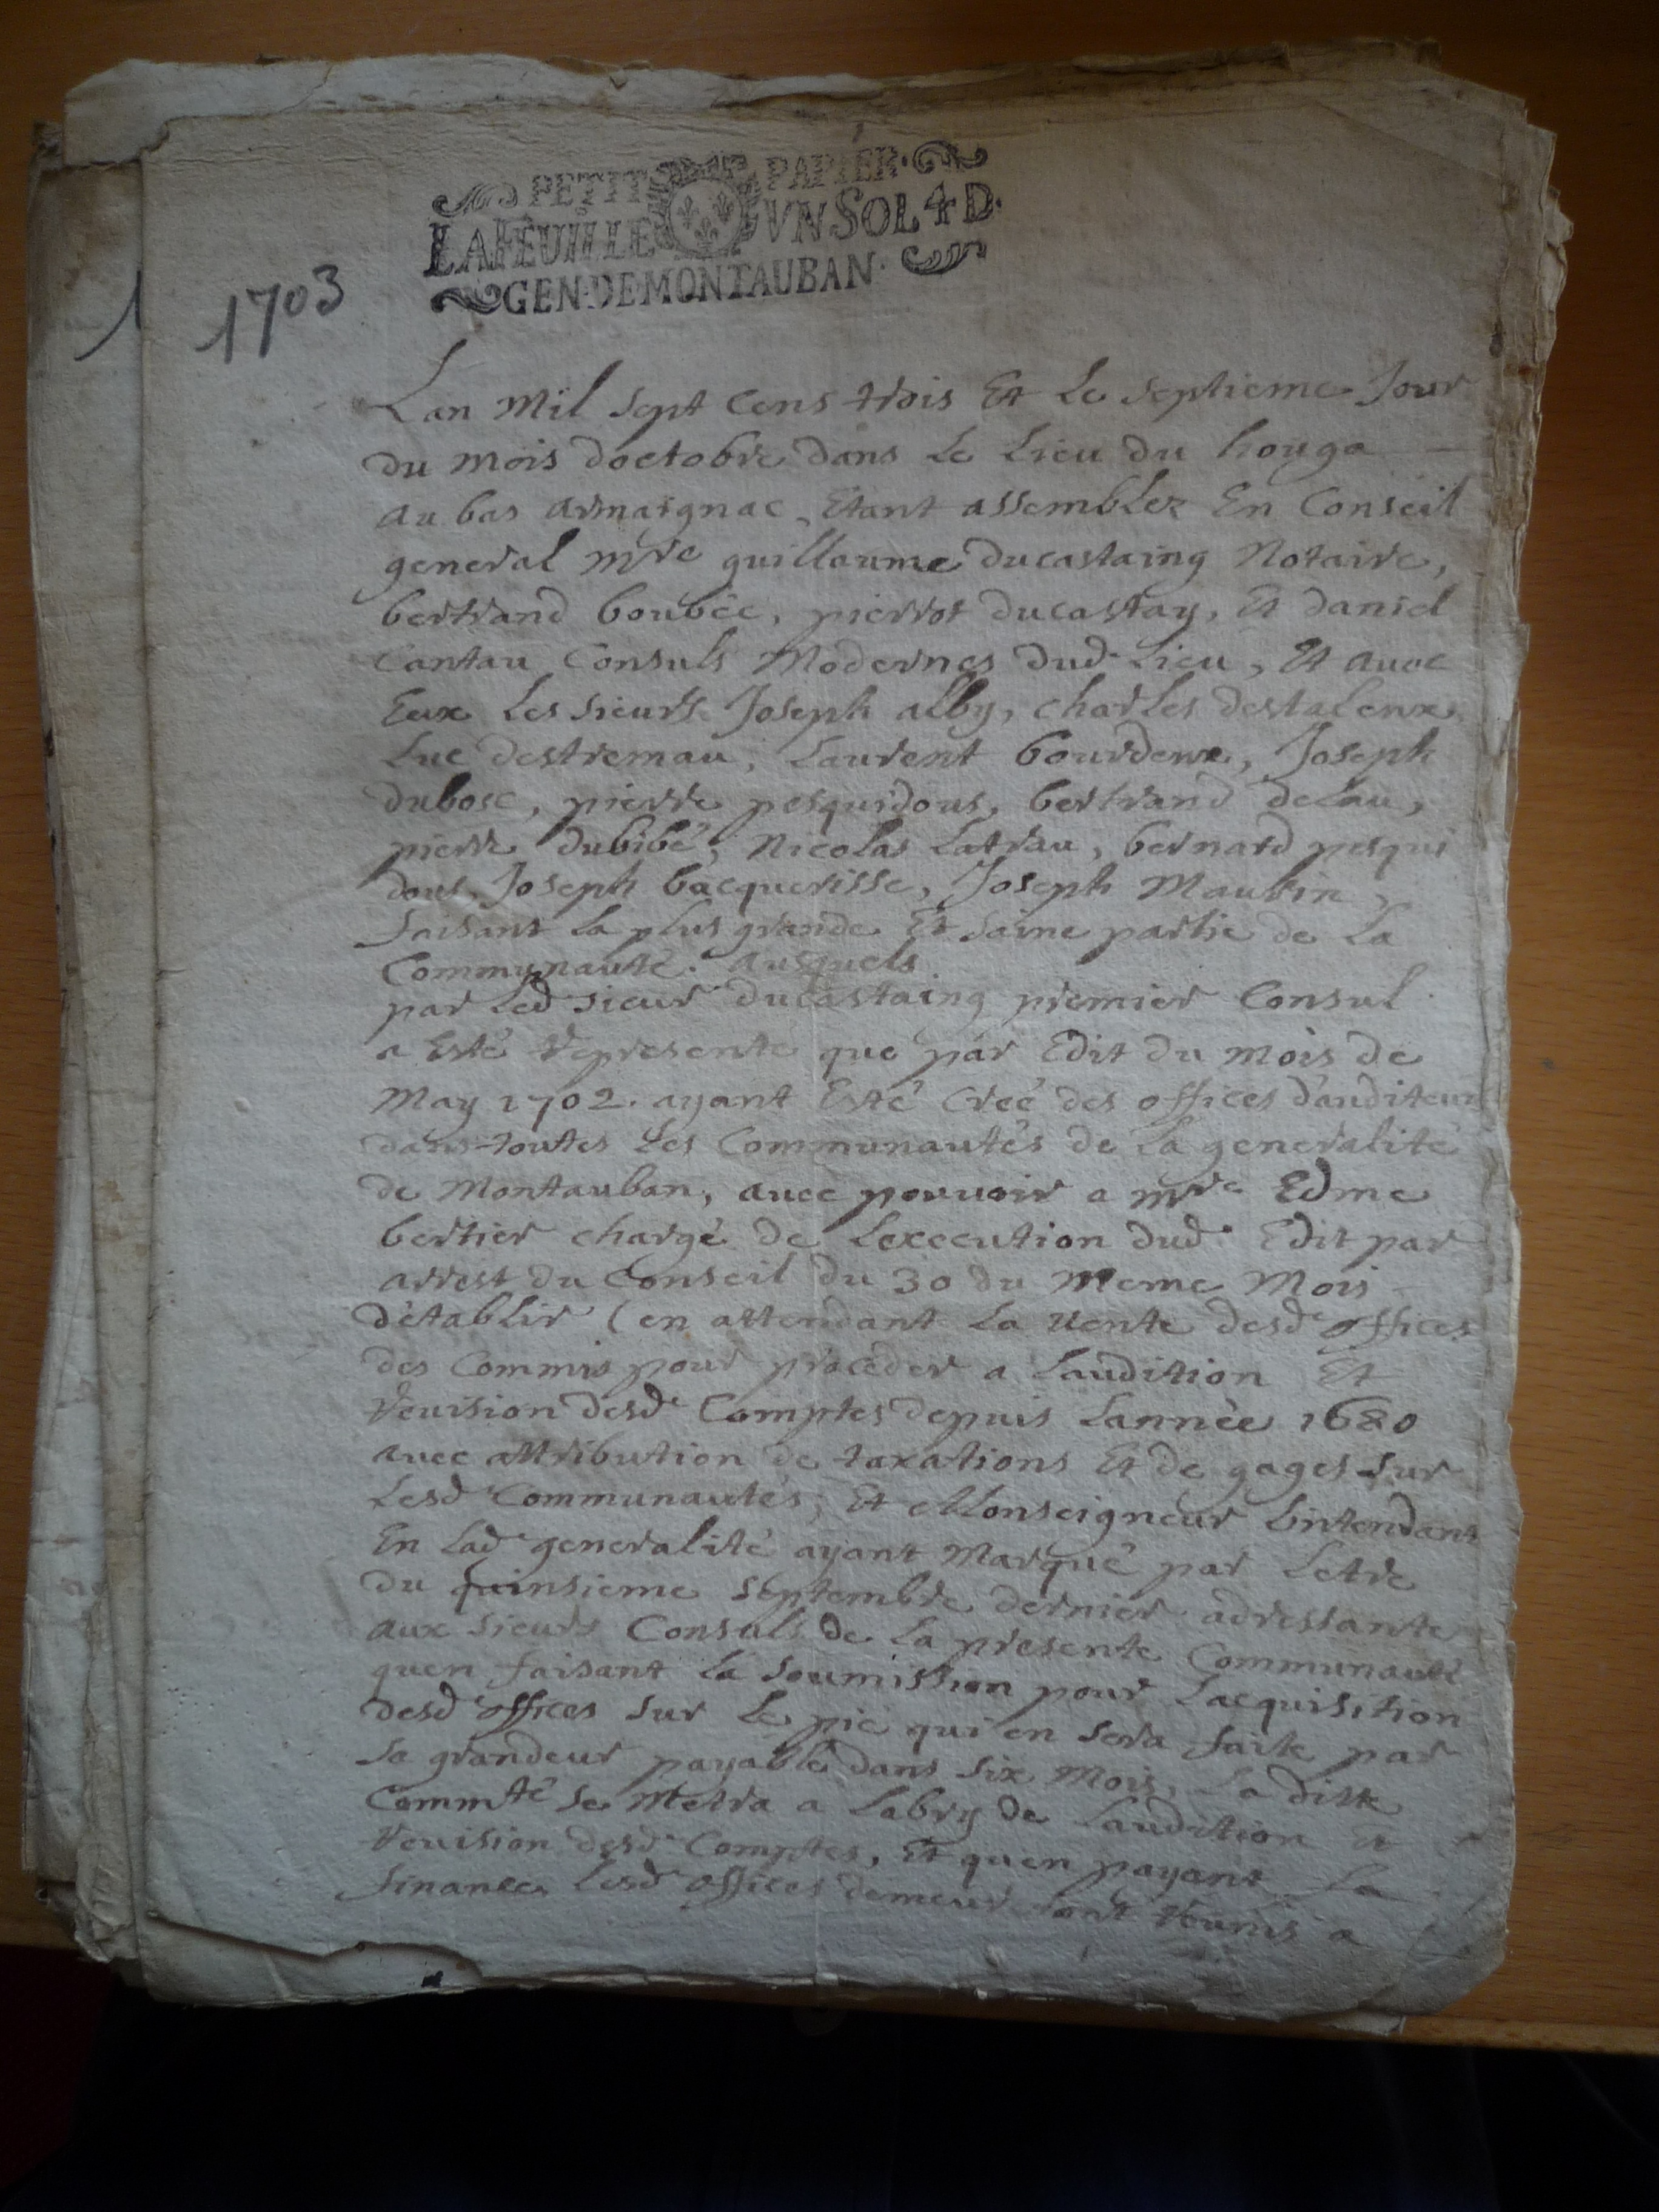 PETIT PAPIER.
LAFEUILLE VN SOL 4 D.
GEN. DE MONTAUBAN.
1
1703
Lan Mil sept cens trois Et Le septieme Jour
du mois doctobre dans Le Lieu du houga
au bas armaignac, Etant assemblez En Conseil
general mre guillaume ducastaing Notaire,
bertrand boubèe, pierrot ducastay, Et daniel
Cantau Consuls Modernes dud. Lieu, Et auec
Eux Les sieurs Joseph alby, charles destalenx,
Luc destremau, Laurent bourdenx, Joseph
dubosc, pierre pesquidous, bertrand delau,
pierre dubibé, Nicolas Latrau, bernard pesqui
dous, Joseph bacquerisse, Joseph Maubin,
faisant La plus grande Et saine partie de La
Communauté. ausquels
par Led sieur ducastaing premier Consul
a Esté representé que par Edit du mois de
May 1702. ayant Esté creé des offices dauditeur
dans toutes Les Communautés de La generalité
de Montauban, auec pouuoir a mre Edme
bertier chargé de Lexecution dud. Edit par
arrest du Conseil du 30 du meme Mois
détablir (en attendant La vente desd. offices
des Commis pour proceder a Laudition Et
reuision desd. Comptes depuis Lannèe 1680
auec attribution de taxations Et de gages sur
Lesd. Communautés, Et Monseigneur Lintendant
En Lad. generalité ayant Marqué par Letre
du quinsieme septembre dernier adressante
aux sieurs Consuls de La presente Communauté
quen faisant La soumission pour Lacquisition
desd. offices sur Le pié qui en sera faite par
sa grandeur payable dans six mois, La dite
Commté se Metra a Labry de Laudition et
reuision desd. Comptes, Et quen payant La
finance Lesd. offices demeureront reunis a